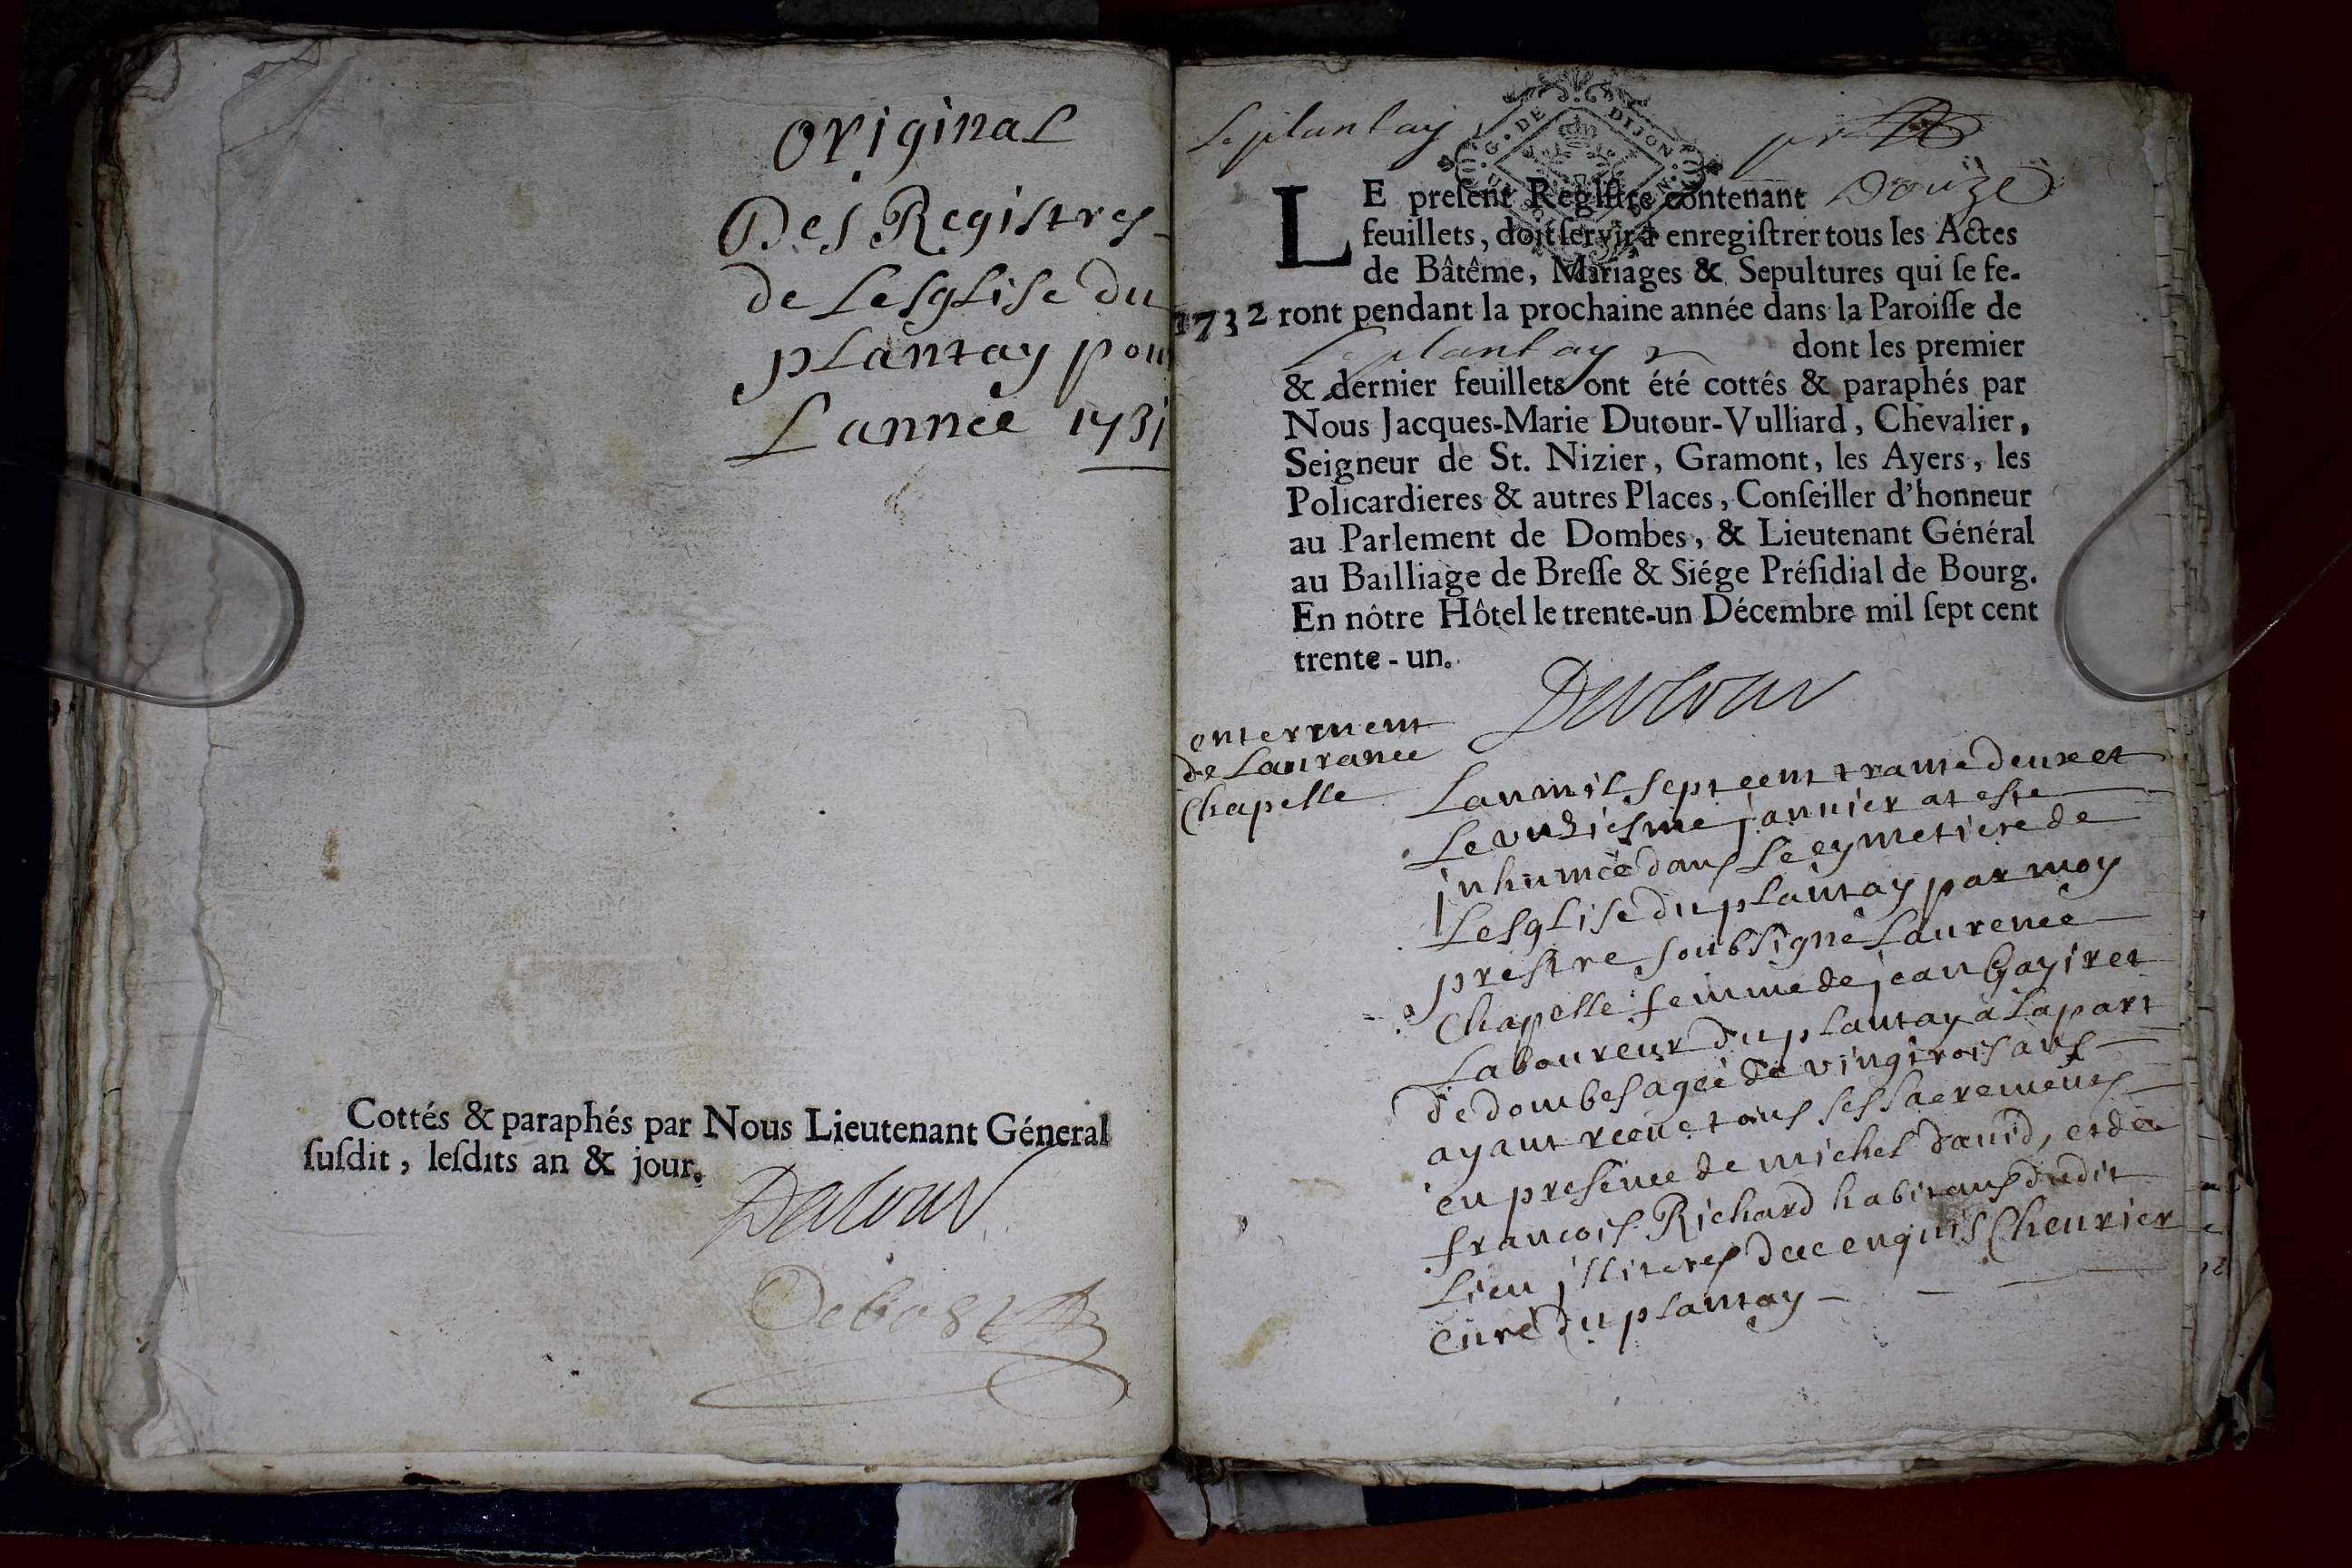 original
Des Registres
de Lesglise du
plantay pour
Lannee 1731
Cottés & paraphés par Nous Lieutenant Géneral
ſuſdit, leſdits an & jour.
Dutour
Le plantay
G. DE DIJON
Douze
LE preſent Regiſtre contenant
feuillets, doit ſervir à enregiſtrer tous les Actes
de Bâtême, Mariages & Sepultures qui ſe fe-
1732 ront pendant la prochaine année dans la Paroiſſe de
Le plantay dont les premier
& dernier feuillets ont été cottés & paraphés par
Nous Jacques-Marie Dutour-Vulliard, Chevalier,
Seigneur de St. Nizier, Gramont, les Ayers, les
Policardieres & autres Places, Conſeiller d'honneur
au Parlement de Dombes, & Lieutenant Général
au Bailliage de Breſſe & Siége Préſidial de Bourg.
En nôtre Hôtel le trente-un Décembre mil ſept cent
trente-un.
Dutour
enterrment
de Laurance
Chapelle
Lan mil sept cent trante deux et
Le unziesme januier at este
jnhumeè dans Le cymetiere de
Lesglise du plantay par moy
prestre soubsigné Laurence
Chapelle femme de jean Gayiret
Laboureur du plantay a La part
de dombes ageé de vingtrois ans
ayant receu tous ses sacrements
en presence de michel dauid, et de
francois Richard habitans dudit
Lieu jlliteres de ce enquis Cheurier
curé du plantay